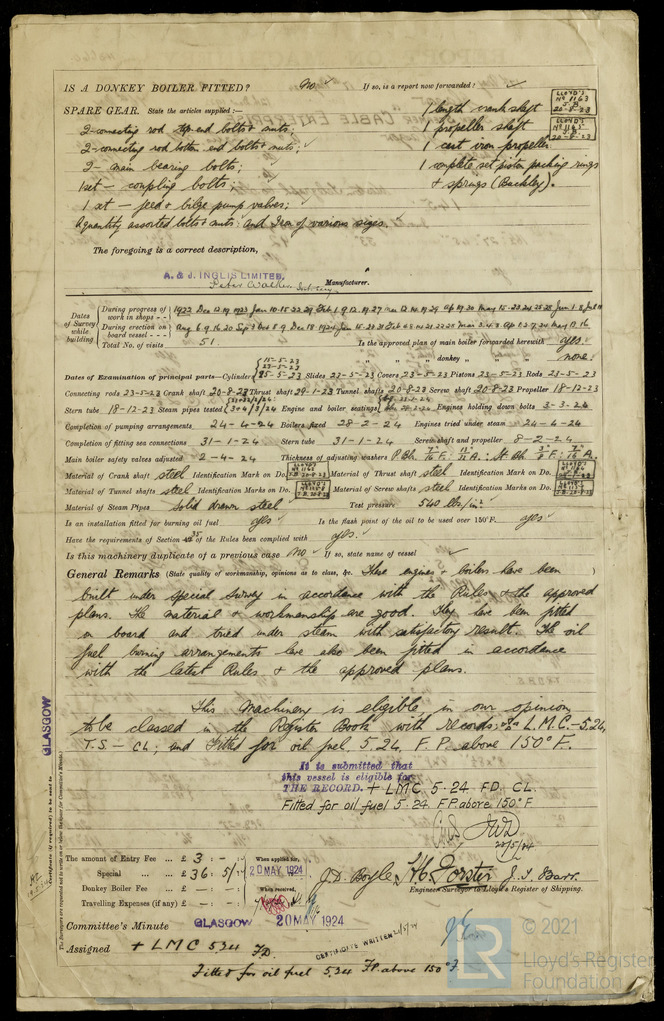 IS A DONKEY BOILER FITTED? No ✓ If so, is a report now forwarded? ✓
SPARE GEAR. State the articles supplied:—
1 length crank shaft
LLOYD'S No 1163 20-8-23
2-connecting rod top end bolts & nuts;
1 propeller shaft
LLOYD'S No 1165 20-8-23
2-connecting rod bottom end bolts & nuts;
1 cast iron propeller
2- main bearing bolts;
1 complete set piston packing rings
1 set — coupling bolts;
& springs (Buckley).
1 set — feed & bilge pump valves;
A quantity assorted bolts & nuts: and Iron of various sizes.
The foregoing is a correct description,
A. & J. INGLIS LIMITED.
Peter Walker Secretary Manufacturer.
Dates of Survey while building
During progress of work in shops - - 1922 Dec 12. 19 1923 Jan 10. 15. 22. 29
During erection on board vessel - - -
Total No. of visits 51. Is the approved plan of main boiler forwarded herewith yes.
" " " donkey " " none.
Dates of Examination of principal parts—Cylinder 15-5-23 Slides 22-5-23 Covers 23-5-23 Pistons 23-5-23 Rods 23-5-23
Connecting rods 23-5-23 Crank shaft 20-8-23 Thrust shaft 29-1-23 Tunnel shafts 20-8-23 Screw shaft 20-8-23 Propeller 18-12-23
Stern tube 18-12-23 Steam pipes tested 3+4/3/24 Engine and boiler seatings Engines holding down bolts 3-3-24
Completion of pumping arrangements 24-4-24 Boilers fixed 28-2-24 Engines tried under steam 24-4-24
Completion of fitting sea connections 31-1-24 Stern tube 31-1-24 Screw shaft and propeller 8-2-24
Main boiler safety valves adjusted 2-4-24 Thickness of adjusting washers
Material of Crank shaft steel Identification Mark on Do. Material of Thrust shaft steel Identification Mark on Do.
Material of Tunnel shafts steel Identification Marks on Do. Material of Screw shafts steel Identification Marks on Do.
Material of Steam Pipes Solid drawn steel Test pressure 540 lbs/in²
Is an installation fitted for burning oil fuel yes ✓ Is the flash point of the oil to be used over 150°F. yes ✓
Have the requirements of Section of the Rules been complied with yes.
Is this machinery duplicate of a previous case no ✓ If so, state name of vessel ✓
General Remarks (State quality of workmanship, opinions as to class, &c. These engines & boilers have been )
built under special survey in accordance with the Rules & the approved
plans. The material & workmanship are good. They have been fitted
on board and tried under steam with satisfactory result. The oil
fuel burning arrangements have also been fitted in accordance
with the latest Rules & the approved plans.
This Machinery is eligible in our opinion
to be classed in the Register Book with records; + L.M.C.—5.24,
T.S—CL; and Fitted for oil fuel 5.24, F.P. above 150°F.
It is submitted that
this vessel is eligible for
THE RECORD. + LMC 5·24 FD. CL.
Fitted for oil fuel 5·24 F.P. above 150°F
22/5/24
GLASGOW
The amount of Entry Fee ... £ 3 : - : When applied for,
Special ... £ 36 : 5/ : 20 MAY 1924
Donkey Boiler Fee ... £ — : — : When received,
Travelling Expenses (if any) £ — : — :
J.D. Boyle, H. Forster J. T. Barr.
Engineer Surveyor to Lloyd's Register of Shipping.
Committee's Minute GLASGOW 20 MAY 1924
Assigned + LMC 5.24 FD.
CERTIFICATE WRITTEN 21/5/24
Fitted for oil fuel 5.24 FP. above 150°F
LR
© 2021
Lloyd's Register
Foundation